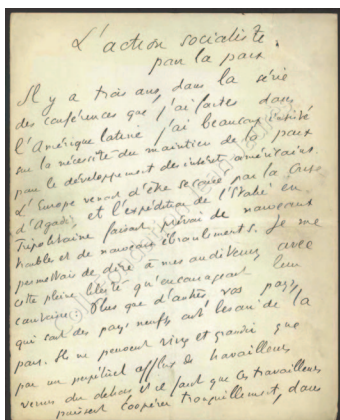 L'action socialiste
pour la paix
Il y a trois ans, dans la série
des conférences que j'ai faites dans
l'Amérique latine j'ai beaucoup insisté
sur la nécessité du maintien de la paix
pour le développement des intérêts américains.
L'Europe venait d'être secouée par la crise
d'Agadir, et l'expédition de l'Italie en
Tripolitaine faisait prévoir de nouveaux
troubles et de nouveaux ébranlements. Je me
permettais de dire à mes auditeurs, avec
cette pleine liberté qu'encourageait leur
Plus que d'autres, vos pays,
qui sont des pays neufs ont besoin de la
paix. Ils ne peuvent vivre et grandir que
par un perpétuel afflux de travailleurs
venus du dehors et il faut que ces travailleurs
puissent coopérer tranquillement, dans